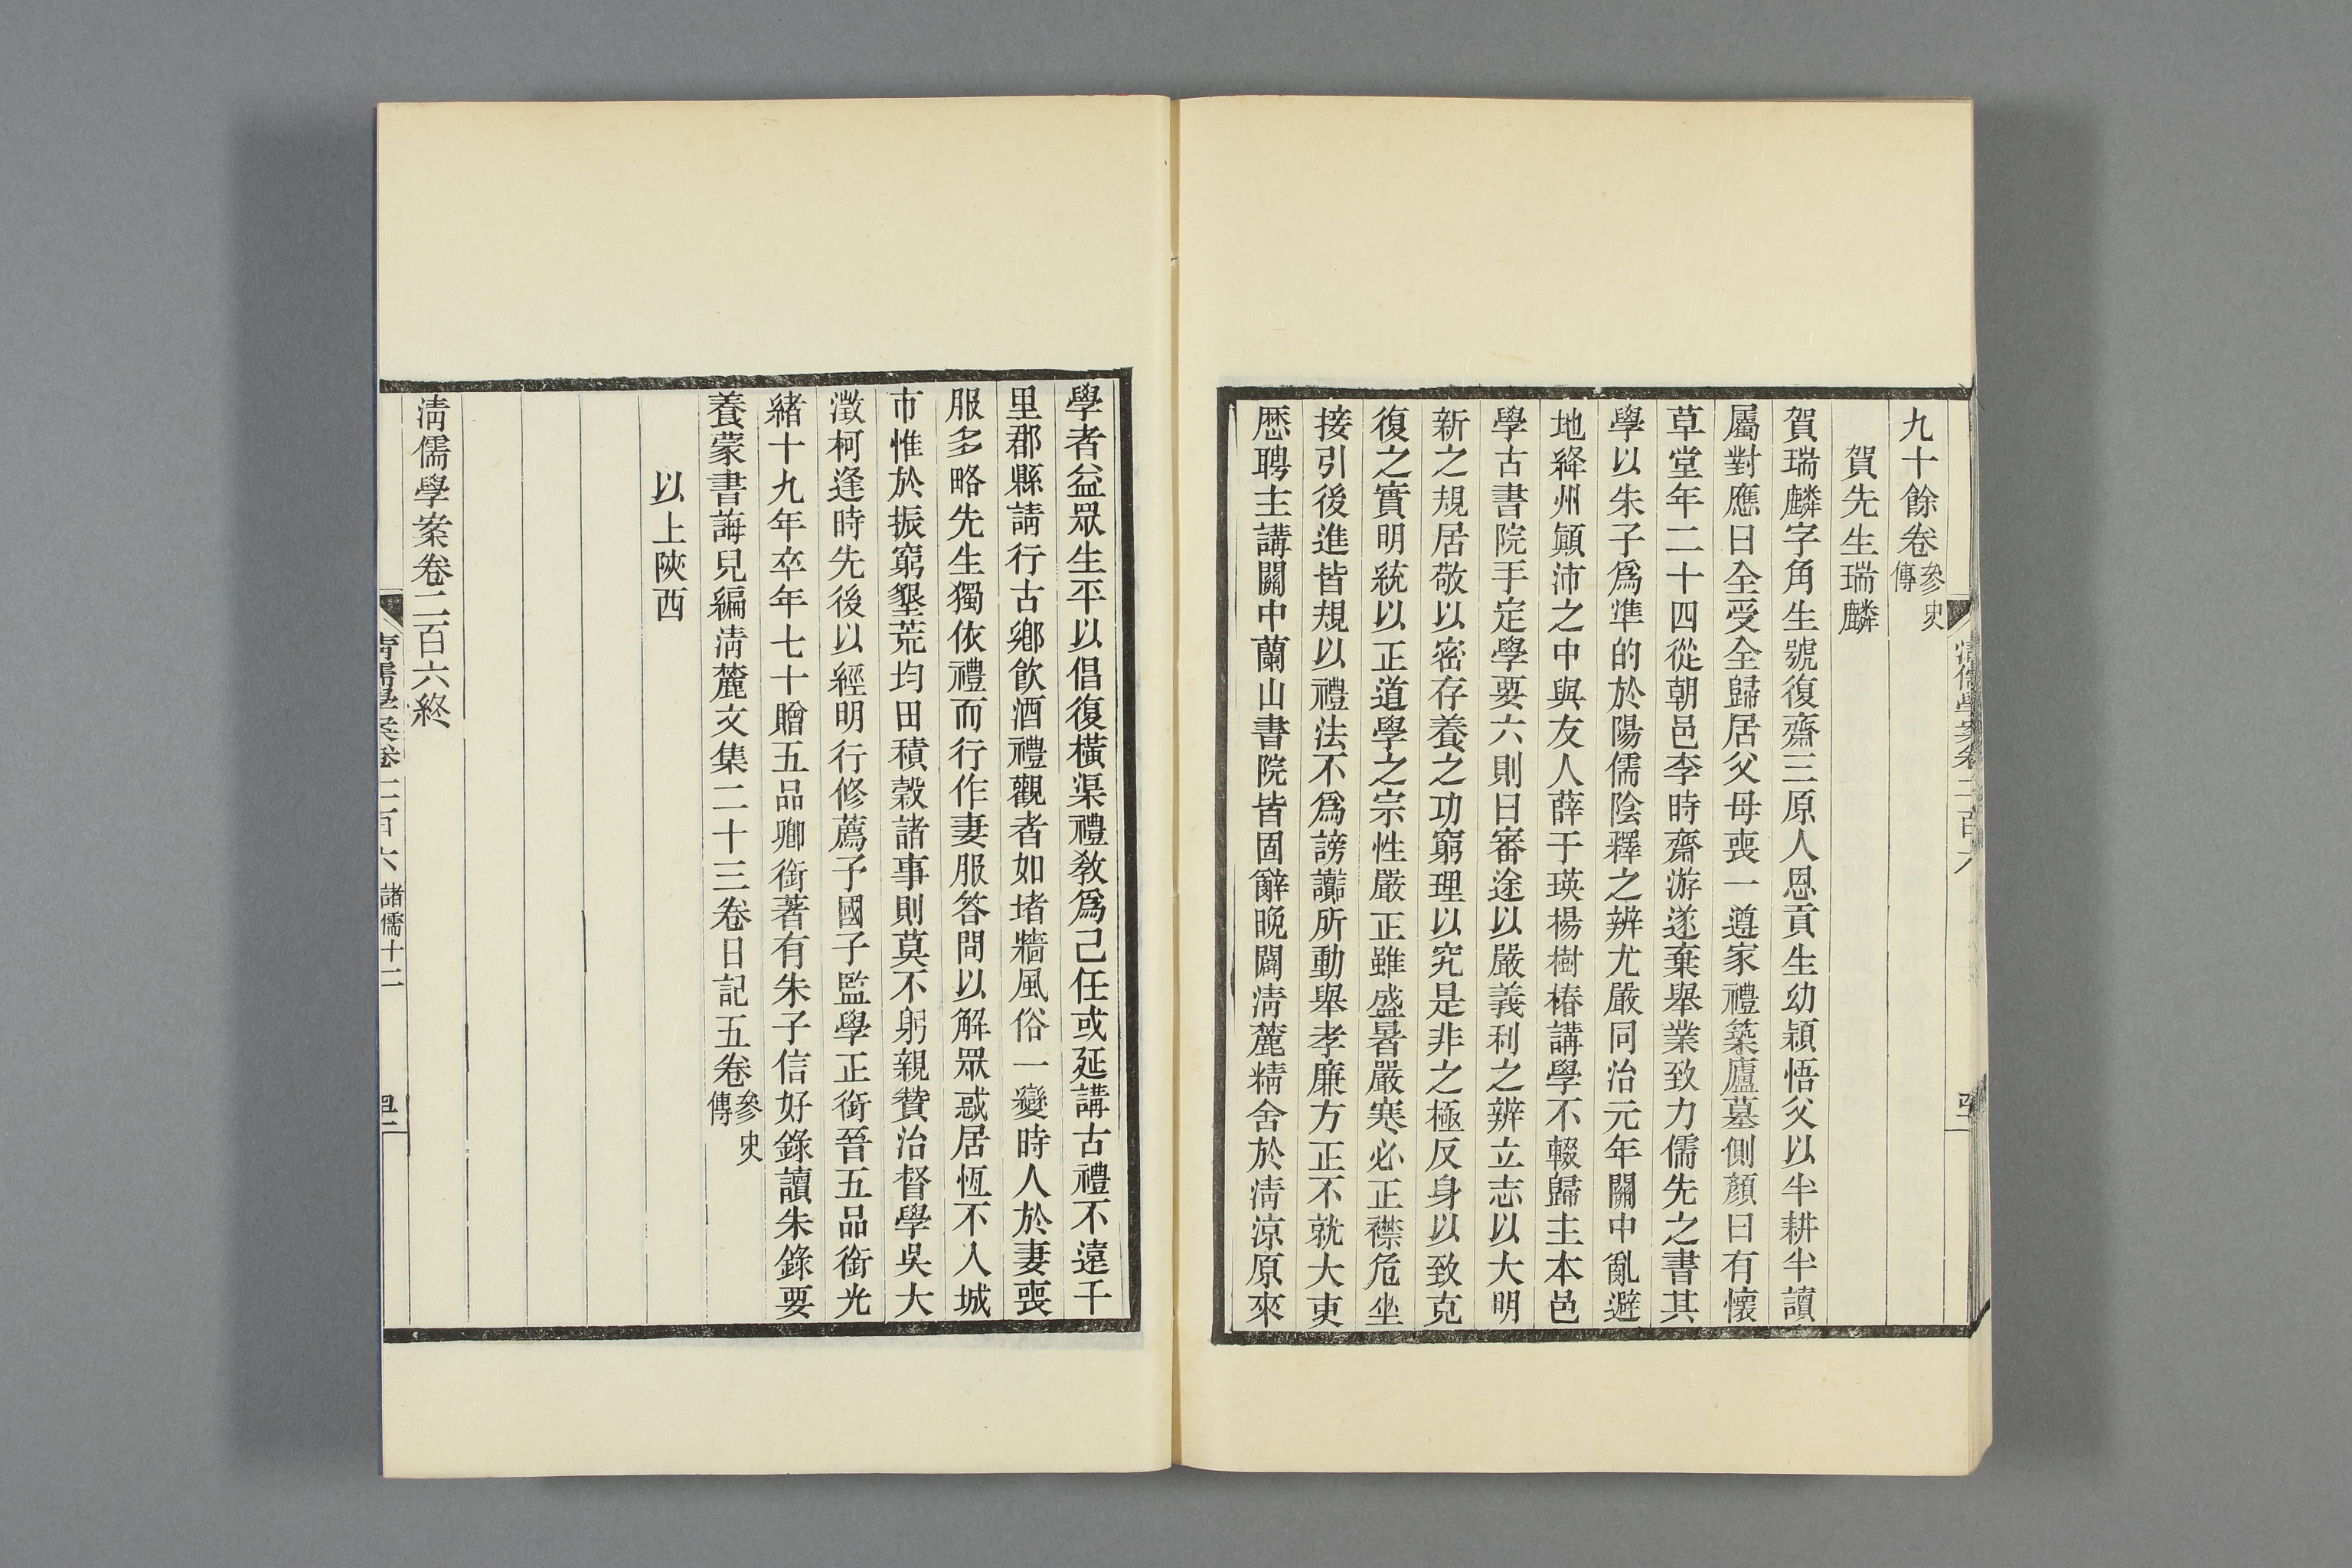 九十餘卷參史傳
賀先生瑞麟
賀瑞麟字角生號復齋三原人恩貢生幼穎悟父以半耕半讀
屬對應曰全受全歸居父母喪一遵家禮築廬墓側顏曰有懷
草堂年二十四從朝邑李時齋游遂棄舉業致力儒先之書其
學以朱子爲準的於陽儒陰釋之辨尤嚴同治元年關中亂避
地絳州顚沛之中與友人薛于瑛楊樹椿講學不輟歸主本邑
學古書院手定學要六則曰審途以嚴義利之辨立志以大明
新之規居敬以密存養之功窮理以究是非之極反身以致克
復之實明統以正道學之宗性嚴正雖盛暑嚴寒必正襟危坐
接引後進皆規以禮法不爲謗讟所動舉孝廉方正不就大吏
歷聘主講關中蘭山書院皆固辭晚闢淸麓精舍於淸涼原來
淸儒學案卷二百六
學者益眾生平以倡復橫渠禮敎爲己任或延講古禮不遠千
里郡縣請行古鄕飮酒禮觀者如堵牆風俗一變時人於妻喪
服多略先生獨依禮而行作妻服答問以解眾惑居恆不入城
市惟於振窮墾荒均田積穀諸事則莫不躬親贊治督學吳大
澂柯逢時先後以經明行修薦予國子監學正銜晉五品銜光
緖十九年卒年七十贈五品卿銜著有朱子信好錄讀朱錄要
養蒙書誨兒編淸麓文集二十三卷日記五卷參史傳
以上陝西
淸儒學案卷二百六終
淸儒學案卷二百六 諸儒十二